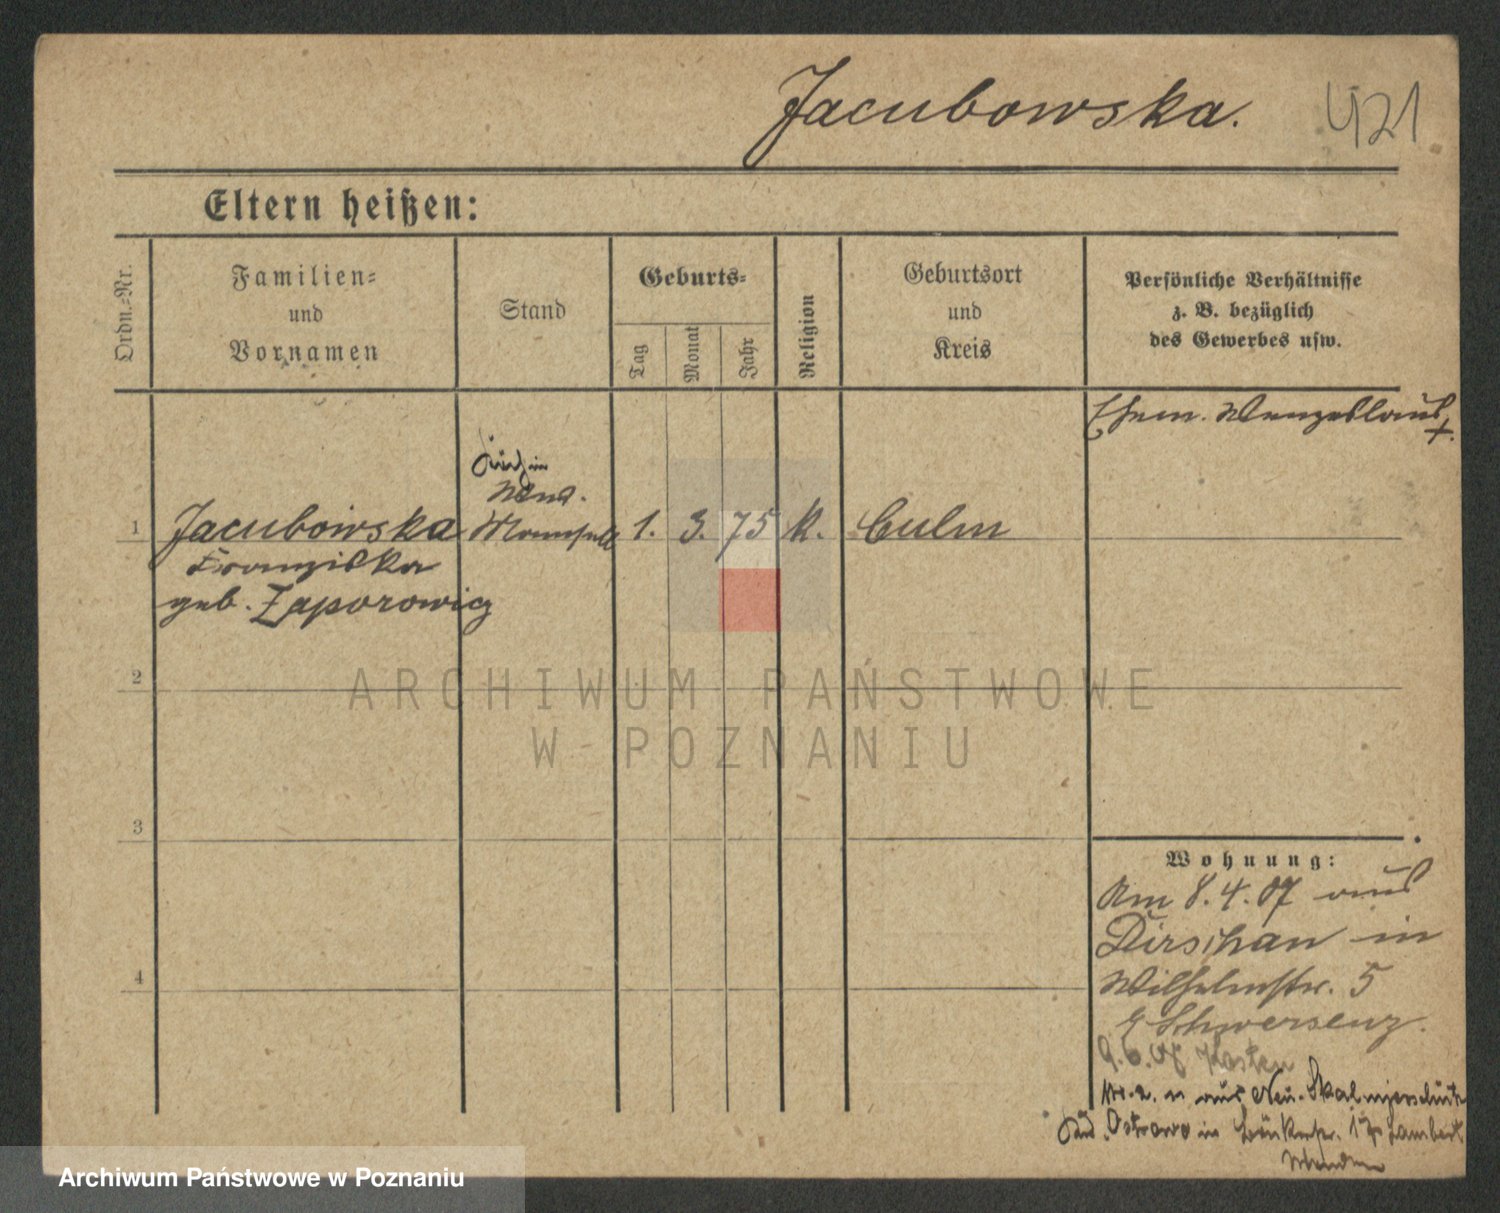 Jacubowska.
421
Eltern heißen:
Ordn.-Nr.
Familien-
und
Vornamen
Stand
Geburts-
Tag
Monat
Jahr
Religion
Geburtsort
und
Kreis
Persönliche Verhältnisse
z. B. bezüglich
des Gewerbes usw.
Ehem. Wenzeslaus
†.
Köchin
1
Jacubowska
Mamsell
1.
3.
75
K.
Culm
Franziska
geb. Zaporowicz
2
ARCHIWUM PAŃSTWOWE
W POZNANIU
3
4
Wohnung:
Am 8.4.07 aus
Dirschau in
Wilhelmstr. 5
Schwersenz.
9.6.08 Kosten
aus Neu-Skalmierschütz
Ostrowo in
Archiwum Państwowe w Poznaniu